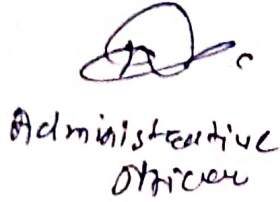 Administrative
Officer